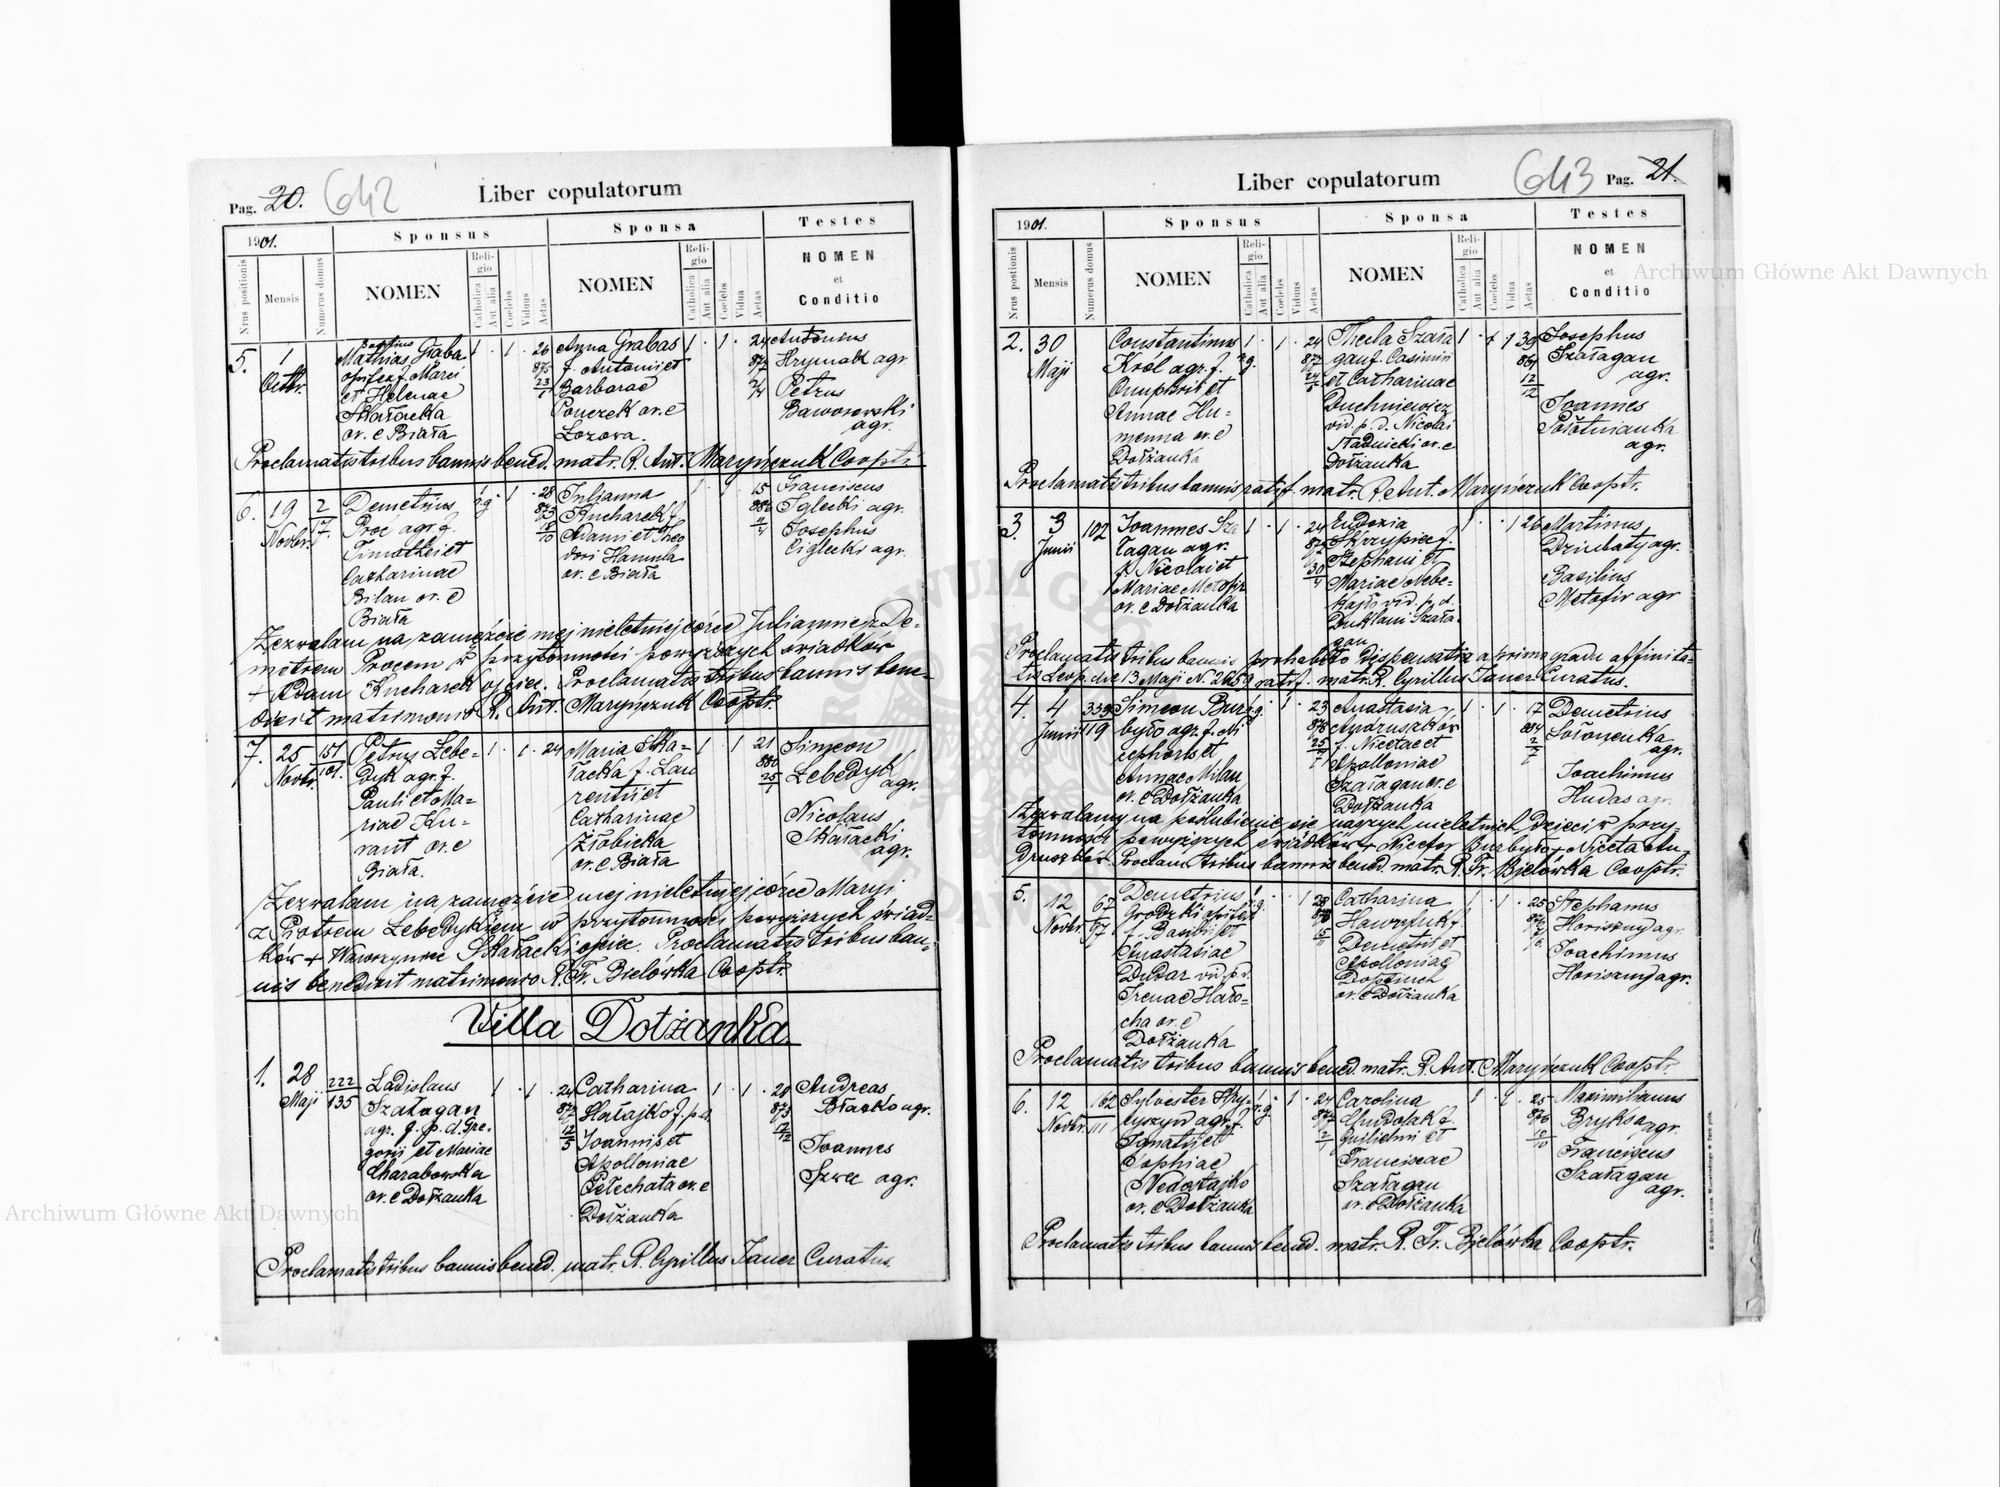 Pag. 20. 642 Liber copulatorum
1901. Sponsus Sponsa Testes
Nrus positionis Mensis Numerus domus NOMEN Religio Catholica Aut alia Coelebs Viduus Aetas NOMEN Religio Catholica Aut alia Coelebs Vidua Aetas NOMEN et Conditio
5. 1 Octbr.
Mathias Graba
opifex f. Marci
et Helenae
Skałacka
or. e Biała
1 1 26 875 23
Anna Grabas
f. Antonii et
Barbarae
Ponczek or. e
Łozowa.
1 1 24
Antonius
Hrymak agr.
Petrus
Baworowski
agr.
Proclamatis tribus bannis bened. matr. R. Ant. Maryńczuk Cooptr.
6. 19 Novbr. 2 17
Demetrius
Proc agr. f.
Timothei et
Catharinae
Bilan or. e
Biała
r.g. 1 28 873 18 10
Julianna
Kucharek f.
Adami et Theo
dori Hamula
or. e Biała
1 1 15
Franciscus
Iglecki agr.
Josephus
Ciglecki agr.
Zezwalam na zamęźcie mej nieletniej córce Juliannie z De-
metrem Procem w przytomności powyższych świadków
+ Adam Kucharek ojciec. Proclamatis tribus bannis bene-
dixit matrimonio R. Ant. Maryńczuk Cooptr.
7. 25 Novbr. 151 101
Petrus Łebe-
dyk agr. f.
Pauli et Ma-
riae Ku-
rant or. e
Biała.
1 1 24
Maria Ska-
łacka f. Lau
rentii et
Catharinae
Złobicka
or. e Biała
1 1 21 880 25 1
Simeon
Łebedyk
agr.
Nicolaus
Skałacki
agr.
Zezwalam na zamęźcie mej nieletniej córce Maryi
z Piotrem Łebedykiem w przytomności powyższych świad-
ków + Wawrzyniec Skałacki ojciec. Proclamatis tribus ban-
nis benedixit matrimonio R. Fr. Bielówka Cooptr.
Villa Dołżanka.
1. 28 Maji 222 135
Ladislaus
Szałagan
agr. f. p. d. Gre-
gorii et Mariae
Charabowska
or. e Dołżanka
1 1 24 877 12 5
Catharina
Hałajko f. p. d.
Joannis et
Apolloniae
Pełechata or. e
Dołżanka
1 1 28 873 17 12
Andreas
Błaszko agr.
Joannes
Szwec agr.
Proclamatis tribus bannis bened. matr. R. Cyrillus Janer Curatus.
Liber copulatorum 643 Pag. 21.
1901. Sponsus Sponsa Testes
Nrus positionis Mensis Numerus domus NOMEN Religio Catholica Aut alia Coelebs Viduus Aetas NOMEN Religio Catholica Aut alia Coelebs Vidua Aetas NOMEN et Conditio
2. 30 Maji
Constantinus
Król agr. f.
Onuphrii et
Annae Hu-
menna or. e
Dołżanka
1 r.g. 1 24 877 24 5
Thecla Szała
gan f. Casimiri
et Catharinae
Duchniewicz
vid. p. d. Nicolai
Stadnicki or. e
Dołżanka
1 1 39 861 12 12
Josephus
Szałagan
agr.
Joannes
Połotnianka
agr.
Proclamatis tribus bannis ratif. matr. R. Ant. Maryńczuk Cooptr.
3. 3 Junii 102
Joannes Sza
łagan agr.
f. Nicolai et
Mariae Metofir
or. e Dołżanka
1 1 24 30
Eudoxia
Skrzypiec f.
Stephani et
Mariae Nebe-
vid. p. d.
Szała-
gan
1 1 26
Martinus
Dziubatyj agr.
Basilius
Metofir agr
Proclamatis tribus bannis prohabito Dispensatio a primo gradu affinita-
tis Leop. dto 13 Maji N. 2659 ratif. matr. R. Cyrillus Janer Curatus.
4. 4 Junii 339 119
Simeon Bur
było agr. f. Ni
cephoris et
Annae Milan
or. e Dołżanka
r.g. 1 23 878 25
Anastasia
Andruszków
f. Nicetae et
Apolloniae
Szałagan or. e
Dołżanka
1 1 17 884 2
Demetrius
Sołonynka
agr.
Joachimus
Hudas agr.
Zezwalamy na poślubienie się naszych nieletnich dzieci w przy-
tomności powyższych świadków + Nicefor Burbyło + Niceta An-
druszków. Proclam. tribus bannis bened. matr. R. Fr. Bielówka Cooptr.
5. 12 Novbr. 67 97
Demetrius
Grodzki opifex
f. Basilii et
Anastasiae
Dudar vid. p. d.
Irenae Haro-
cha or. e
Dołżanka
r.g. 1 28 15
Catharina
Hawryluk f.
Demetrii et
Apolloniae
or. e Dołżanka
1 1 25
Stephanus
Horiszny agr.
Joachimus
Horiszny agr.
Proclamatis tribus bannis bened. matr. R. Ant. Maryńczuk Cooptr.
6. 12 Novbr. 162 111
Sylvester Hry-
cyszyn agr. f.
Ignatii et
Sophiae
Nedostajko
or. e Dołżanka
r.g 1 24
Carolina
Chudolak f.
Guilielmi et
Franciscae
Szałagan
or. e Dołżanka
1 1 25 876 10
Maximilianus
Bryksa agr.
Franciscus
Szałagan
agr.
Proclamatis tribus bannis bened. matr. R. Fr. Bielówka Cooptr.
Archiwum Główne Akt Dawnych
Archiwum Główne Akt Dawnych